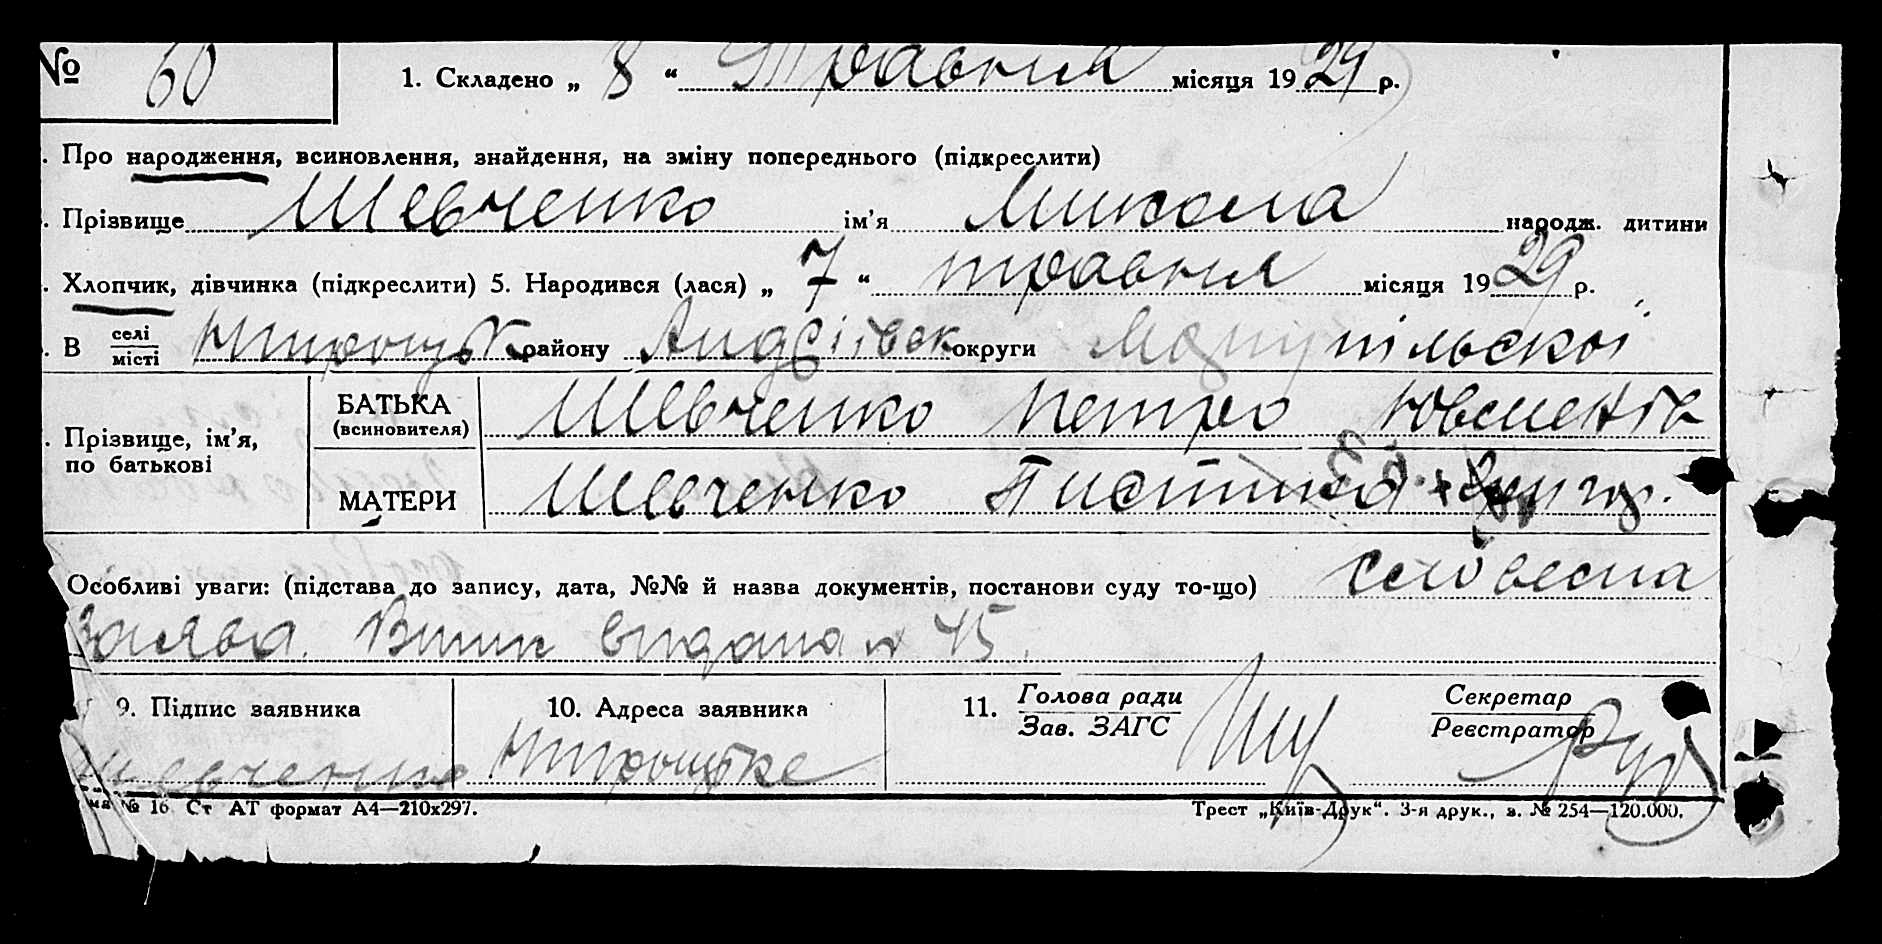 № 60 1. Складено „ 8 “ Травня місяця 1929 р.
. Про народження, всиновлення, знайдення, на зміну попереднього (підкреслити)
. Прізвище Шевченко ім’я Микола народж. дитини
. Хлопчик, дівчинка (підкреслити) 5. Народився (лася) „ 7 “ травня місяця 1929 р.
. В селі місті району Андріївськ округи Маріупільскої
. Прізвище, ім’я, по батькові
БАТЬКА (всиновителя) Шевченко Петро
МАТЕРИ Шевченко
Особливі уваги: (підстава до запису, дата, №№ й назва документів, постанови суду то-що) словесна
Заява. видана № 45.
9. Підпис заявника 10. Адреса заявника 11. Голова ради Секретар
Зав. ЗАГС Реєстратор
№ 16 Ст АТ формат А4—210х297. Трест „Київ-Друк“. 3-я друк., з. № 254—120.000.